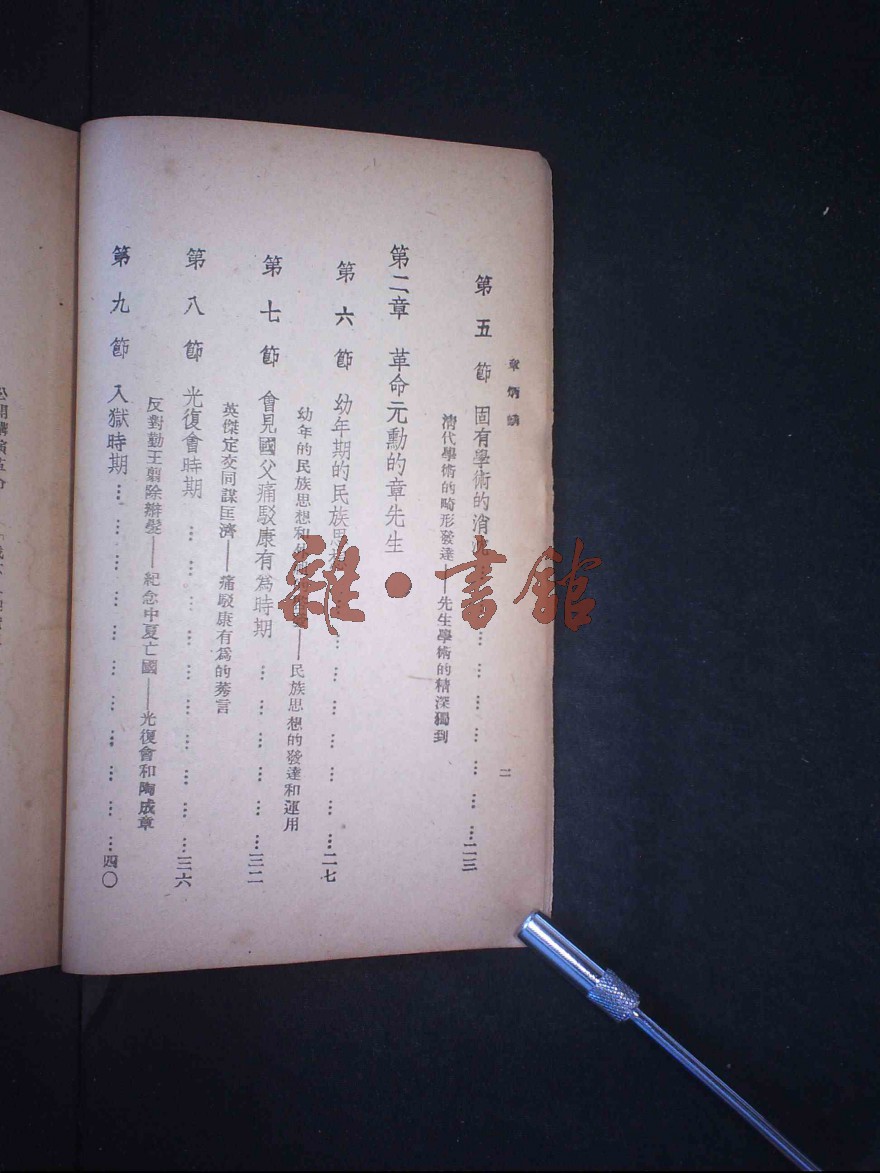 章炳麟
二
第五節 固有學術的消沈……………………二三
清代學術的畸形發達——先生學術的精深獨到
第二章 革命元勳的章先生
第六節 幼年期的民族思想……………………二七
幼年的民族思想和——民族思想的發達和運用
第七節 會見國父痛駁康有為時期……………………三二
英傑定交同謀匡濟——痛駁康有為的莠言
第八節 光復會時期……………………三六
反對勤王翦除辮髮——紀念中夏亡國——光復會和陶成章
第九節 入獄時期……………………四〇
雜·書館